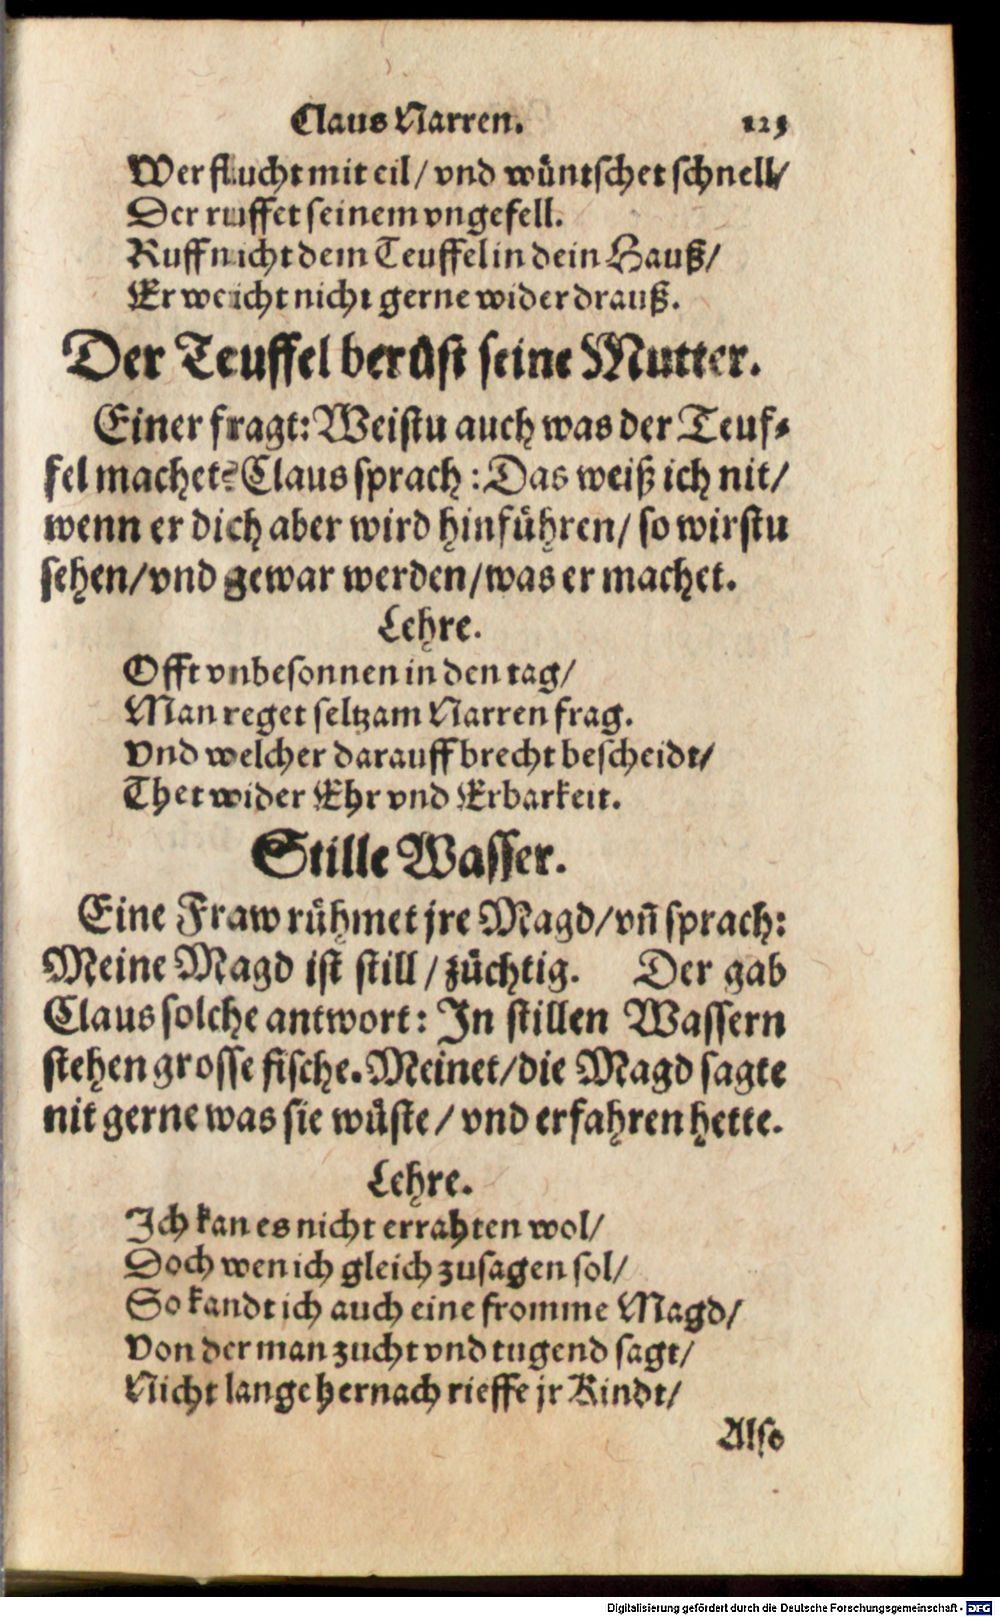 Claus Narren. 123
Wer flucht mit eil/ vnd wüntschet schnell/
Der ruffet seinem vngefell.
Ruff nicht dem Teuffel in dein Hauß/
Er weicht nicht gerne wider drauß.
Der Teuffel berüst seine Mutter.
Einer fragt: Weistu auch was der Teuf⸗
fel machet? Claus sprach: Das weiß ich nit/
wenn er dich aber wird hinführen/ so wirstu
sehen/ vnd gewar werden/ was er machet.
Lehre.
Offt vnbesonnen in den tag/
Man reget seltzam Narren frag.
Vnd welcher darauff brecht bescheidt/
Thet wider Ehr vnd Erbarkeit.
Stille Wasser.
Eine Fraw rühmet jre Magd/ vñ sprach:
Meine Magd ist still/ züchtig. Der gab
Claus solche antwort: In stillen Wassern
stehen grosse fische. Meinet/ die Magd sagte
nit gerne was sie wüste/ vnd erfahren hette.
Lehre.
Ich kan es nicht errahten wol/
Doch wen ich gleich zusagen sol/
So kandt ich auch eine fromme Magd/
Von der man zucht vnd tugend sagt/
Nicht lange hernach rieffe jr Kindt/
Also
Digitalisierung gefördert durch die Deutsche Forschungsgemeinschaft - DFG